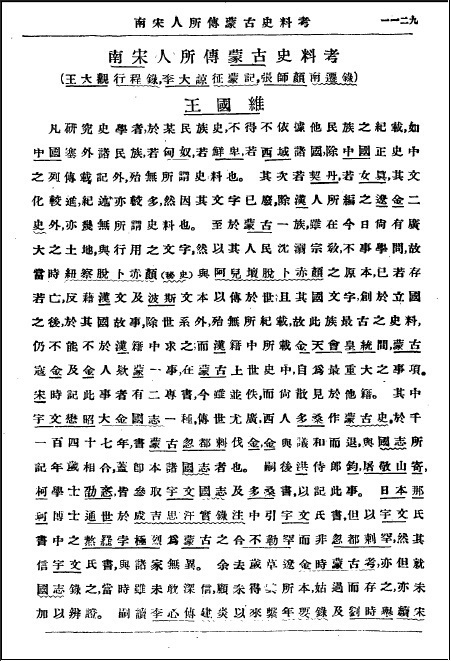 南宋人所傳蒙古史料考 一一二九
南宋人所傳蒙古史料考
(王大觀行程錄,李大諒征蒙記,張師顏南遷錄)
王國維
凡研究史學者,於某民族史,不得不依據他民族之紀載,如
中國塞外諸民族,若匈奴,若鮮卑,若西域諸國,除中國正史中
之列傳載記外,殆無所謂史料也。 其次若契丹,若女眞,其文
化較進,紀述亦較多,然因其文字已廢,除漢人所編之遼金二
史外,亦幾無所謂史料也。 至於蒙古一族,雖在今日尙有廣
大之土地,與行用之文字,然以其人民沈溺宗敎,不事學問,故
當時紐察脫卜赤顏(秘史)與阿兒壇脫卜赤顏之原本,已若存
若亡,反藉漢文及波斯文本以傳於世;且其國文字,創於立國
之後,於其國故事,除世系外,殆無所紀載,故此族最古之史料,
仍不能不於漢籍中求之;而漢籍中所載金天會皇統間,蒙古
寇金及金人欵蒙一事,在蒙古上世史中,自爲最重大之事項。
宋時記此事者有二專書,今雖並佚,而尙散見於他籍。 其中
宇文懋昭大金國志一種,傳世尤廣,西人多桑作蒙古史,於千
一百四十七年,書蒙古忽都剌伐金,金與議和而退,與國志所
記年歲相合,蓋卽本諸國志者也。 嗣後洪侍郎鈞,屠敬山寄,
柯學士劭忞,皆參取宇文國志及多桑書,以記此事。 日本那
珂博士通世於成吉思汗實錄注中引宇文氏書,但以宇文氏
書中之熬羅孛極烈爲蒙古之合不勒罕而非忽都剌罕,然其
信宇文氏書,與諸家無異。 余去歲草遼金時蒙古考,亦但就
國志錄之,當時雖未敢深信,顧未得其所本,姑過而存之,亦未
加以辨證。 嗣讀李心傳建炎以來繫年要錄及劉時舉續宋